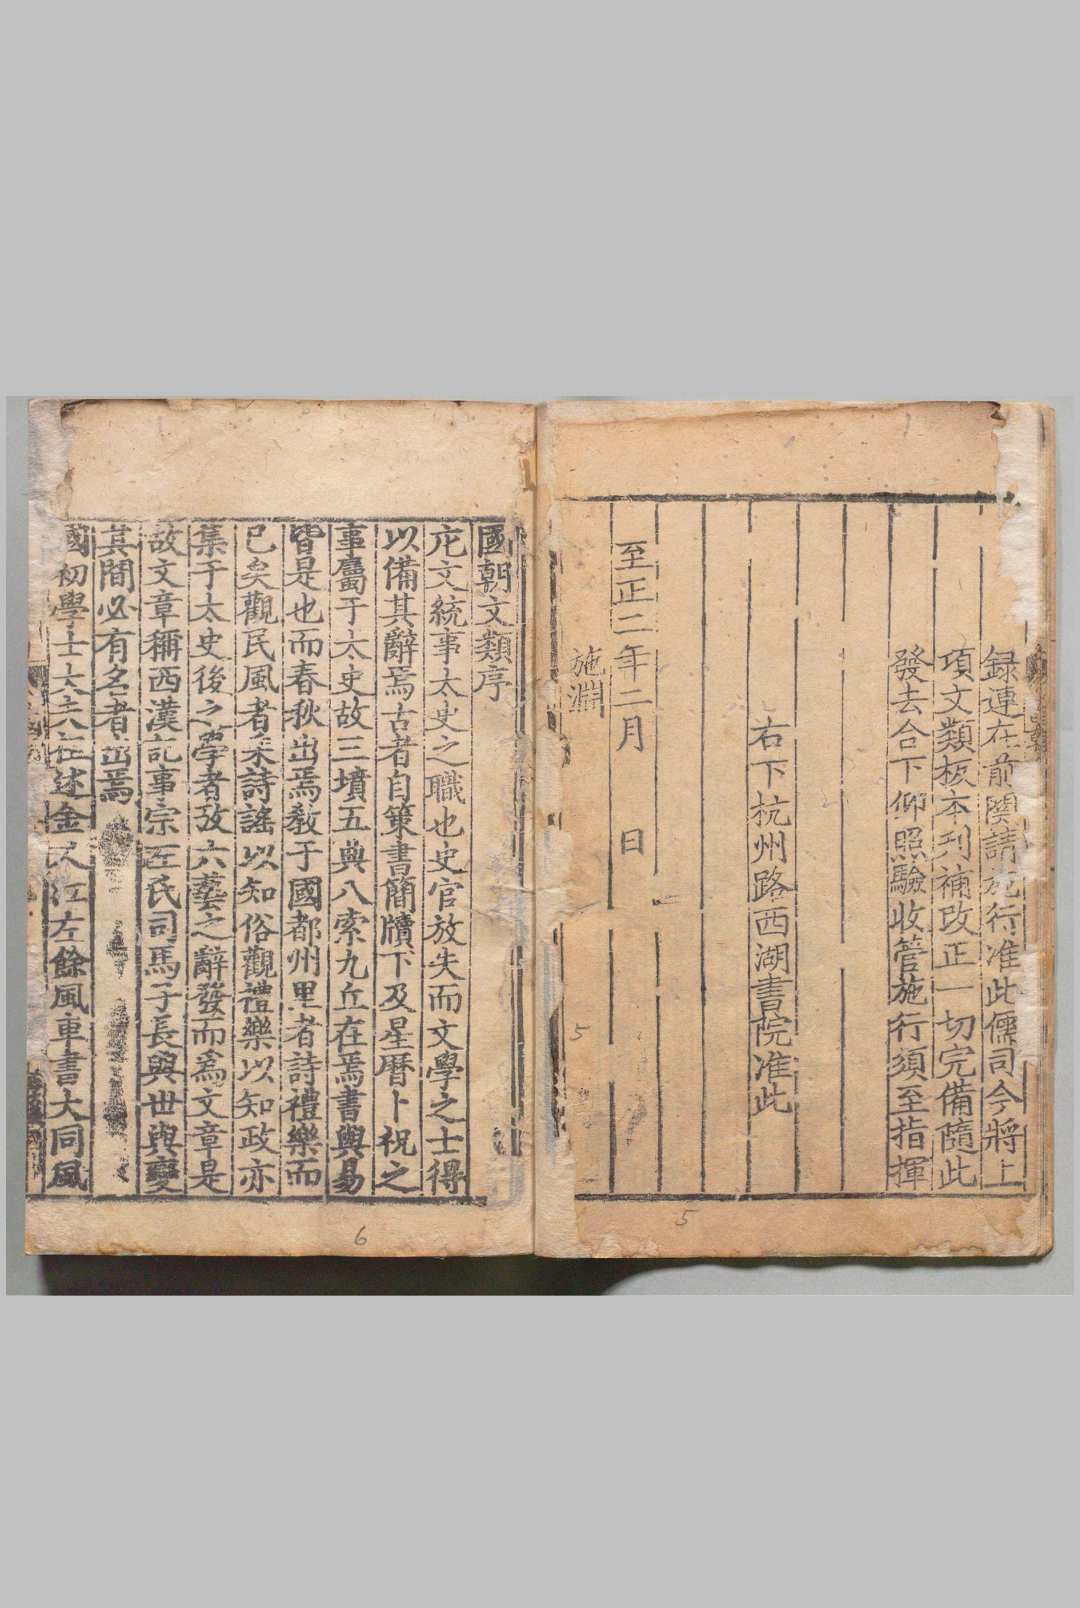 録連在前関請施行准此儒司今將上
項文類板本刋補改正一切完備隨此
發去合下仰照驗收管施行須至指揮
右下杭州路西湖書院准此
至正二年二月 日
施淵
5
5
國朝文類序
元文統事太史之職也史官放失而文學之士得
以備其辭焉古者自策書簡牘下及星曆卜祝之
事屬于太史故三墳五典八索九丘在焉書與易
皆是也而春秋出焉敎于國都州里者詩禮樂而
已矣觀民風者采詩謠以知俗觀禮樂以知政亦
集于太史後之學者攷六藝之辭發而爲文章是
故文章稱西漢記事宗左氏司馬子長與世與變
其間必有名者出焉
國初學士大夫祖述金人江左餘風車書大同風
6